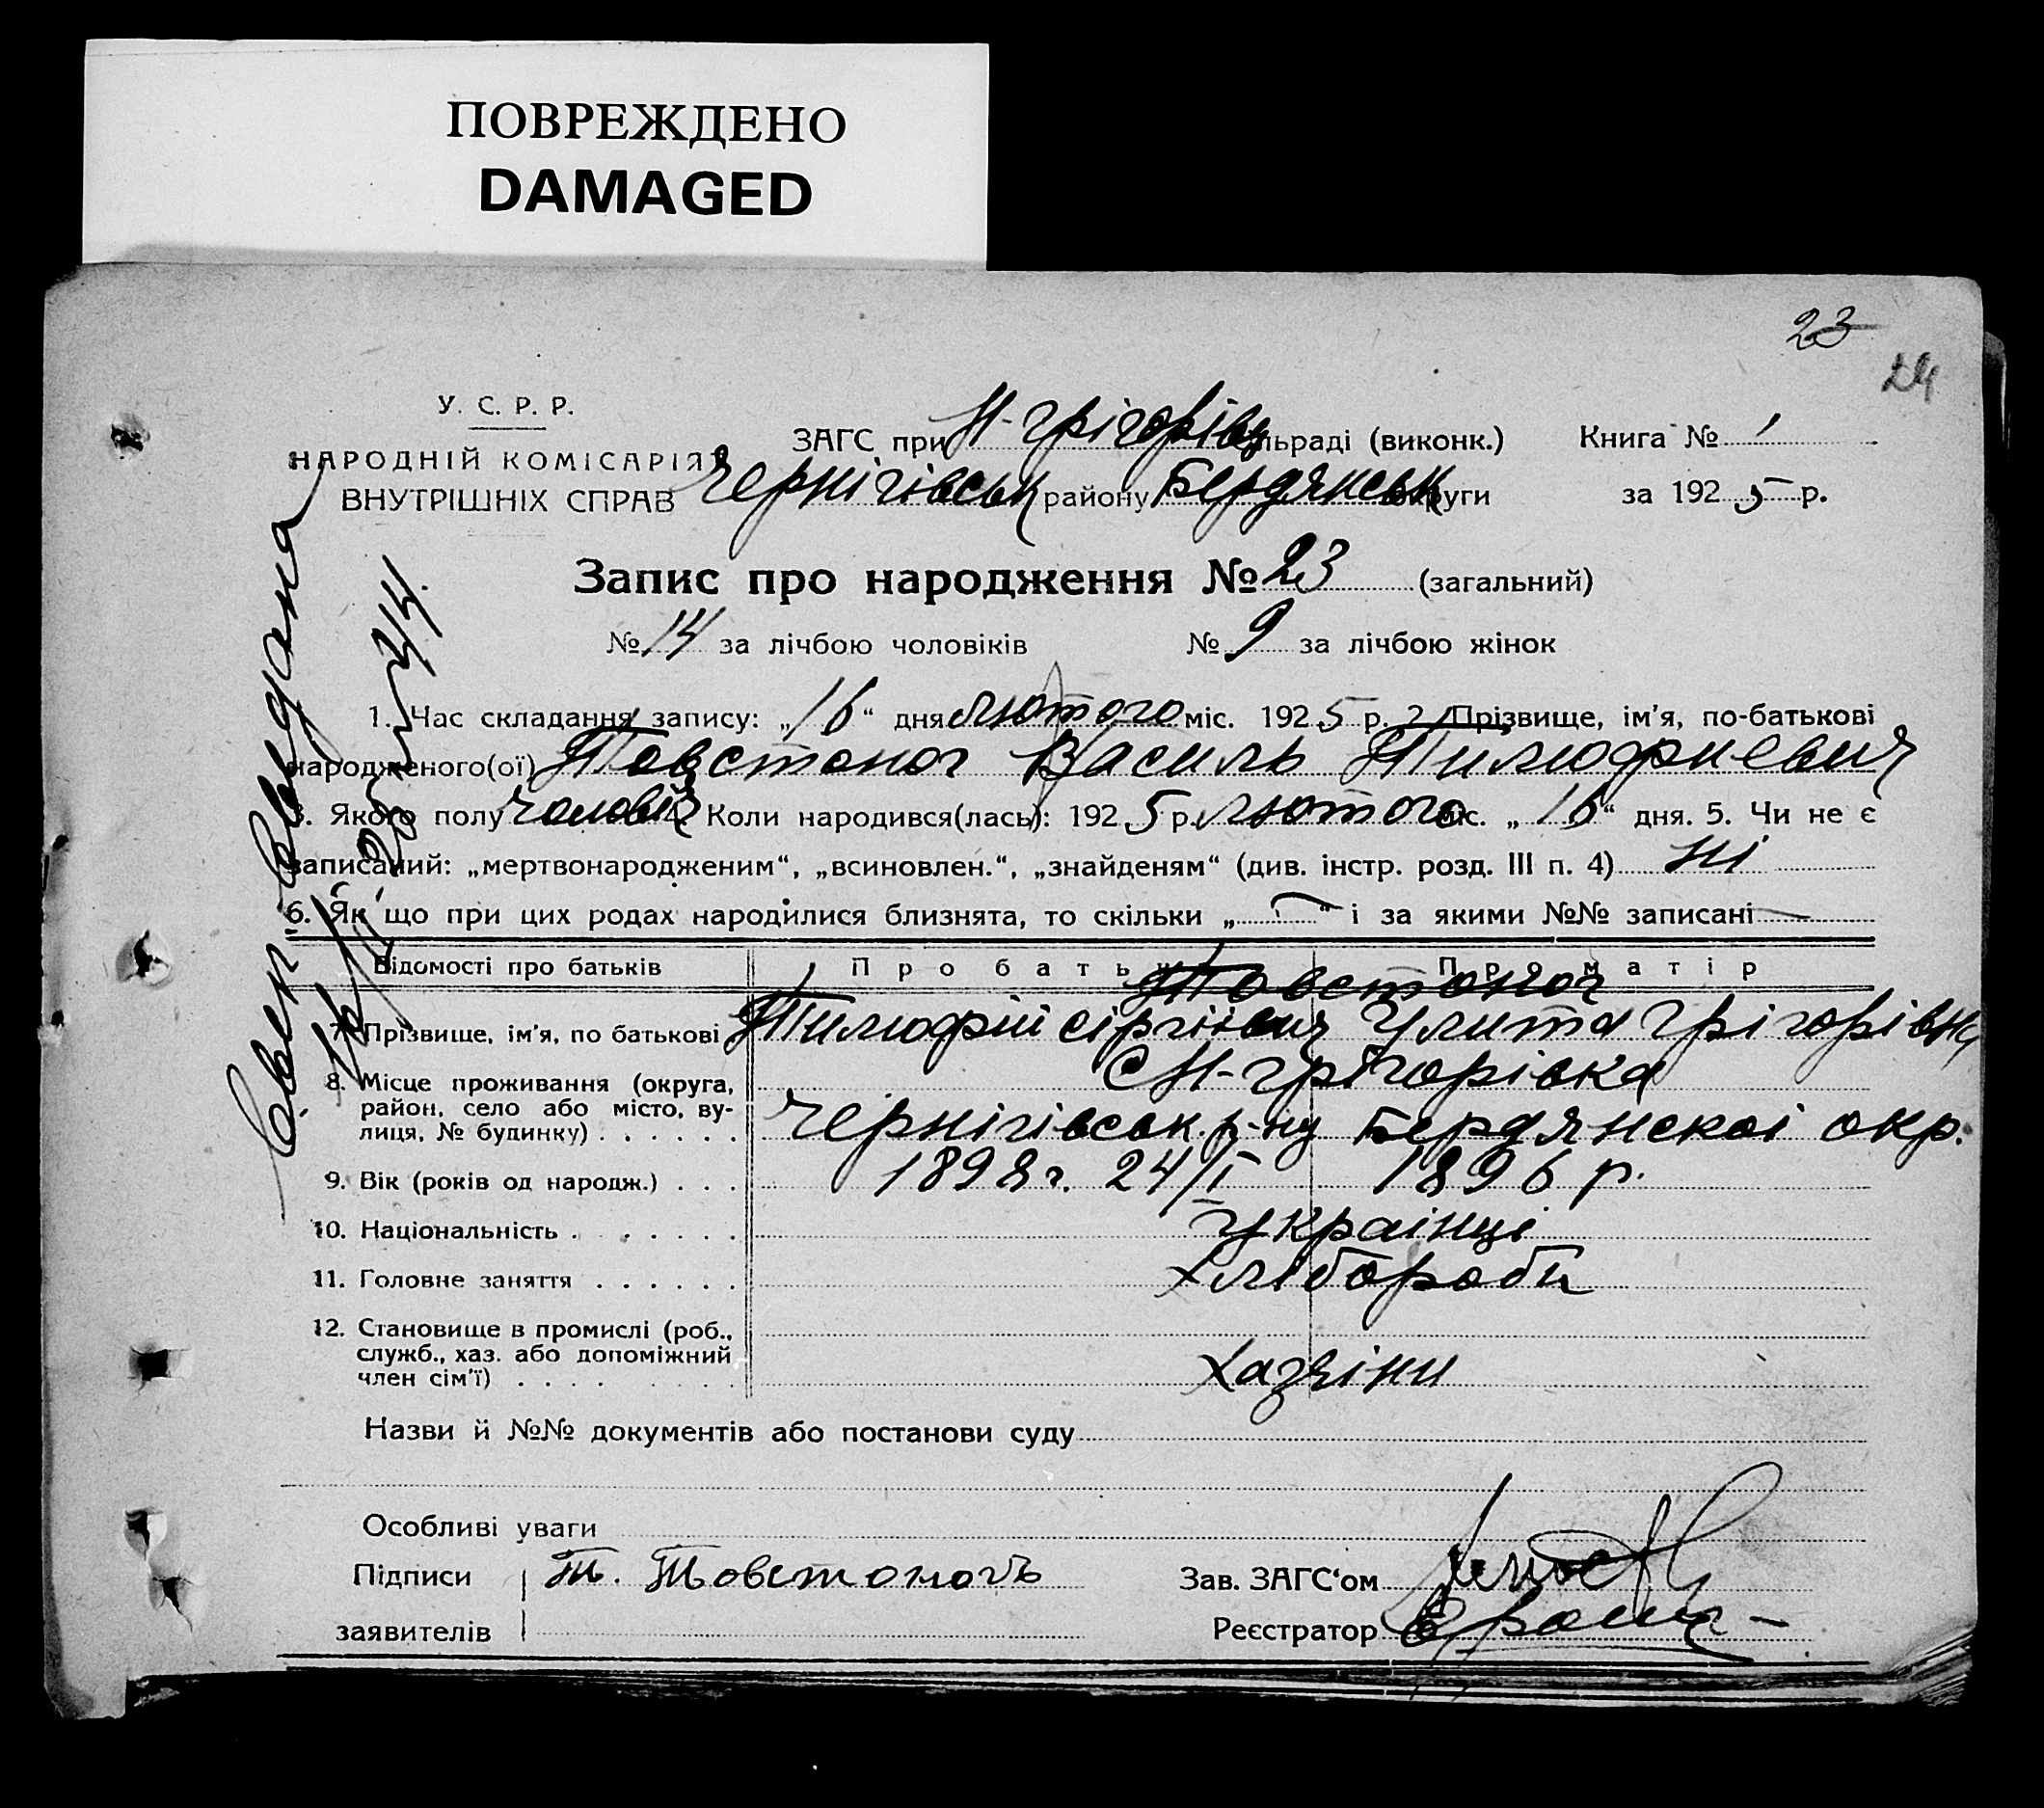 ПОВРЕЖДЕНО
DAMAGED
23
24
У. С. Р. Р.
НАРОДНІЙ КОМІСАРІЯТ
ВНУТРІШНІХ СПРАВ
ЗАГС при Н-Грігорівц сільраді (виконк.)
Книга № 1
Чернігівськ району Бердянськ округи
за 1925 р.
Запис про народження № 23 (загальний)
№ 14 за лічбою чоловіків № 9 за лічбою жінок
1. Час складання запису: „16“ дня лютого міс. 1925 р. 2. Прізвище, ім'я, по-батькові
народженого(ої) Товстоног Василь Тимофиевич
3. Якого полу чоловіч Коли народився(лась): 1925 р. лютого міс. „16“ дня. 5. Чи не є
записаний: „мертвонародженим“, „всиновлен.“, „знайденям“ (див. інстр. розд. III п. 4) ні
6. Як що при цих родах народилися близнята, то скільки „ — “ і за якими №№ записані —
Відомості про батьків Про батька Про матір
Товстоног
7. Прізвище, ім'я, по батькові Тимофій Сіргіївич Улита Грігорівна
8. Місце проживання (округа, район, село або місто, ву-
лиця, № будинку) . . . . . .
С Н-Грігорівка
Чернігівськ. р-ну Бердянскоі окр.
9. Вік (років од народж.) . . . 1898 г. 24/I 1896 р.
10. Національність . . . . . . Українці
11. Головне заняття . . . . . . Хлібороби
12. Становище в промислі (роб.,
служб., хаз. або допоміжний
член сім'ї) . . . . . . . . Хазяіни
Назви й №№ документів або постанови суду
Особливі уваги
Підписи Т. Товстоногъ
заявителів
Зав. ЗАГС‘ом
Реєстратор